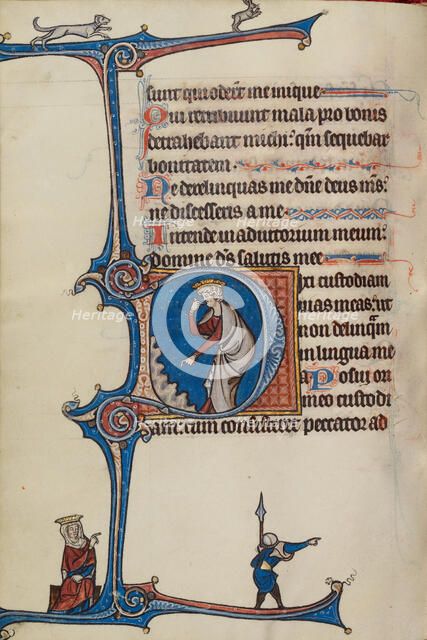 sunt qui oder̄t me inique
Qui retribuunt mala pro bonis
detrahebant michi: qm̄ sequebar
bonitatem.
Ne derelinquas me dn̄e deus ms̄:
ne discesseris a me.
Intende in adiutorium meum:
domine ds̄ salutis mee
Dixi custodiam
uias meas: ut
non delinqm̄
in lingua me
a Posui ori
meo custodi
peccator ad
Heritage
Heritage
Heritage
Heritage
Heritage
Heritage